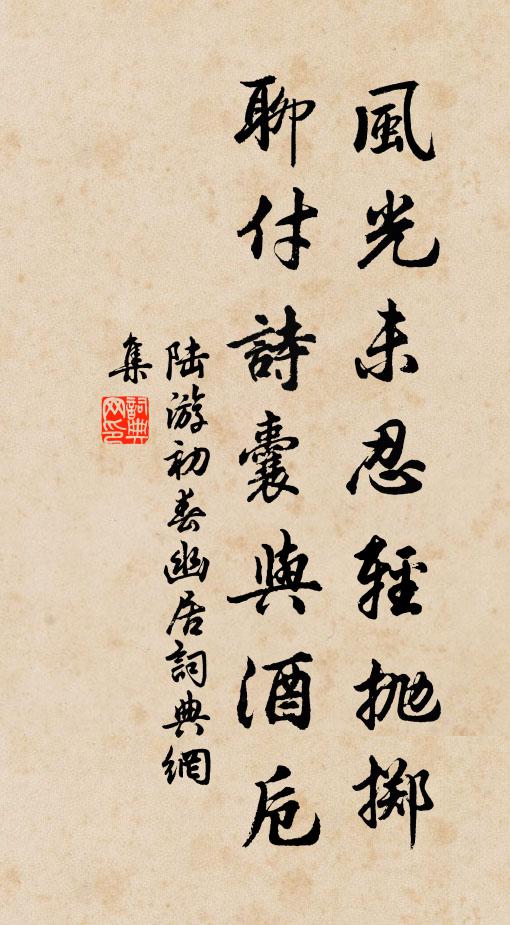 風光未忍輕抛擲
聊付詩囊與酒卮
陆游初春幽居詞典網
集
詞典
网印